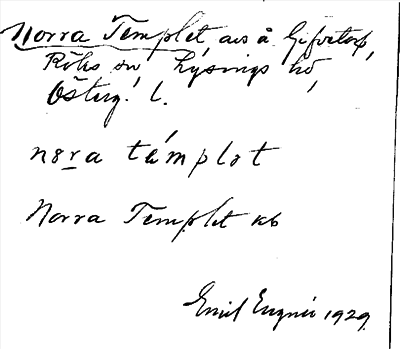 Norra Templet, avs å Gifvetorp,
Röks sn, Lysings hd,
Österg. l.
nora támplot
Norra Templet kb
Emil Engnér 1929